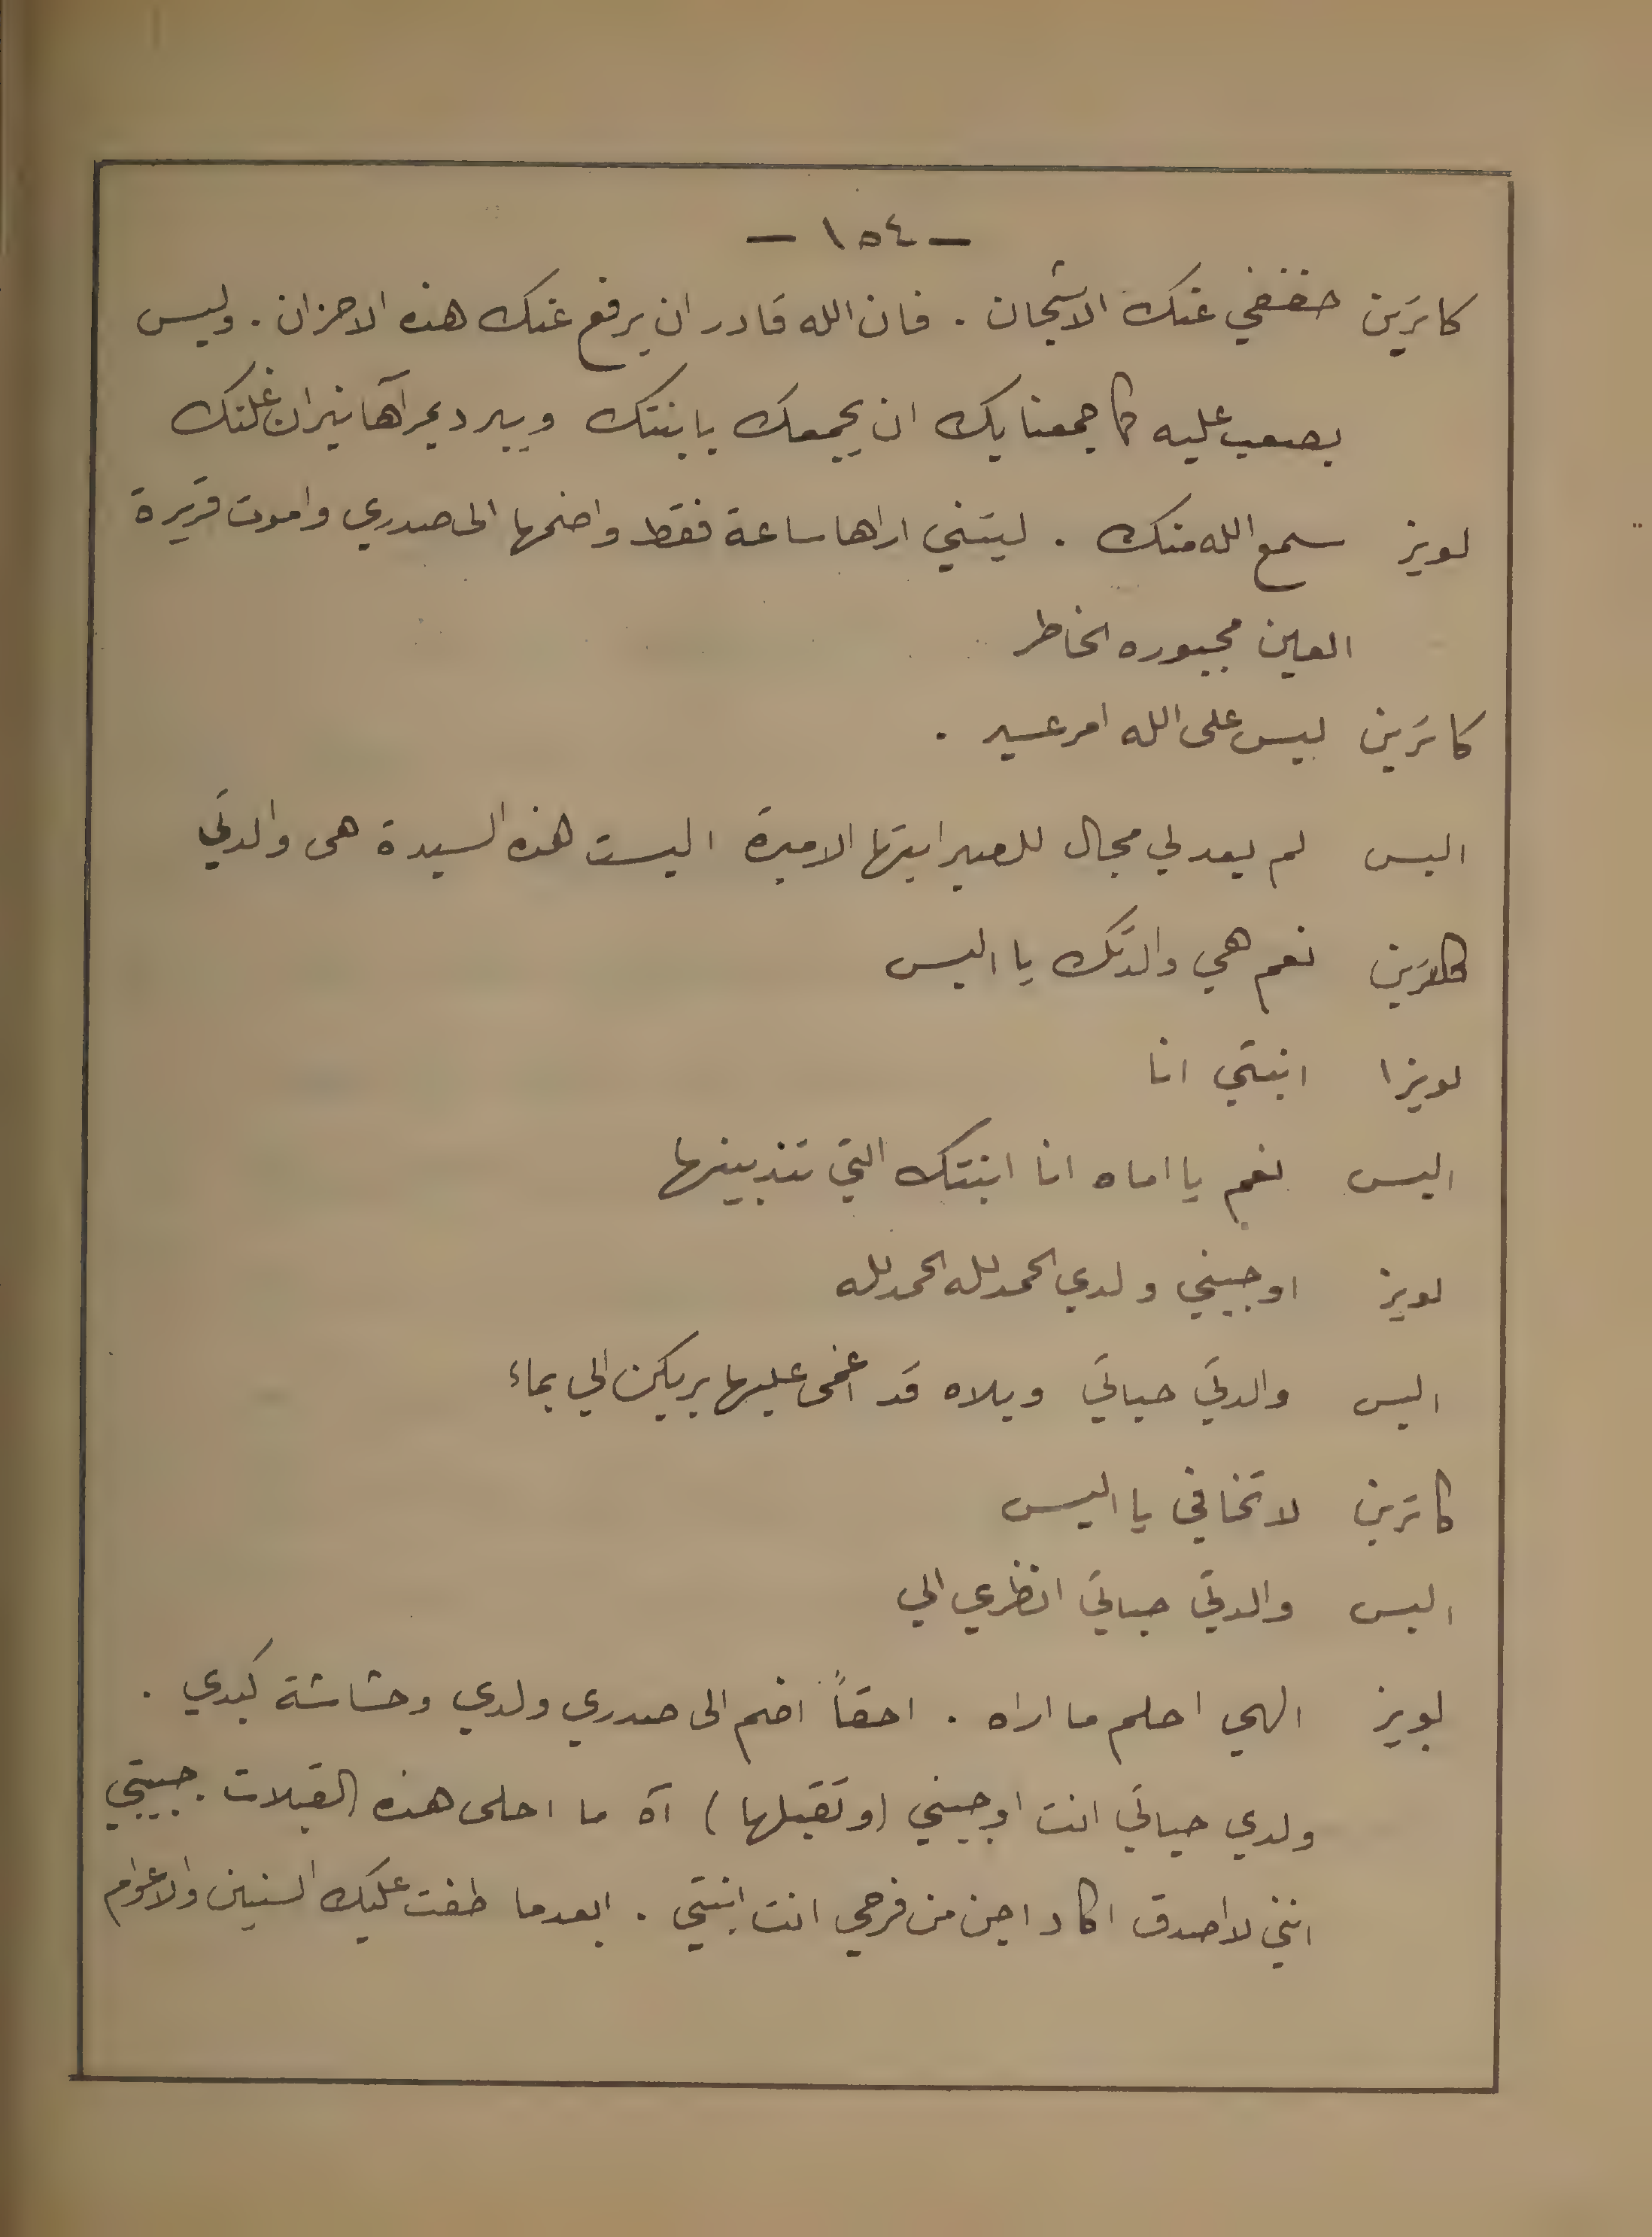 — ١٥٤ —
كاترين خففي عنك الاشجان . فان الله قادر ان يرفع عنك هذه الاحزان . وليس
يصعب عليه كما جمعنا بك ان يجمعك بابنتك ويبرد بمرآها نيران غلتك
لويز سمع الله منك . ليتني اراها ساعة فقط واضمها الى صدري واموت قريرة
العين مجبوره الخاطر
كاترين ليس على الله امر عسير .
اليس لم يعد لي مجال للصبر ايتها الاميرة اليست هذه السيدة هى والدتي
كاترين نعم هي والدتك يا اليس
لويزا ابنتي انا
اليس نعم يا اماه انا ابنتك التي تندبينها
لويز اوجيني ولدي الحمد لله الحمد لله
اليس والدتي حياتي ويلاه قد اغمى عليها بربكن الي بماء
كاترين لا تخافي يا اليس
اليس والدتي حياتي انظري الي
لويز الهي احلم ما اراه . احقاً اضم الى صدري ولدي وحشاشة كبدي .
ولدي حياتي انت اوجيني (وتقبلها) آه ما احلى هذه القبلات . حبيبتي
انني لا اصدق اكاد اجن من فرحي انت ابنتي . ابعدما طفت عليك السنين والاعوام